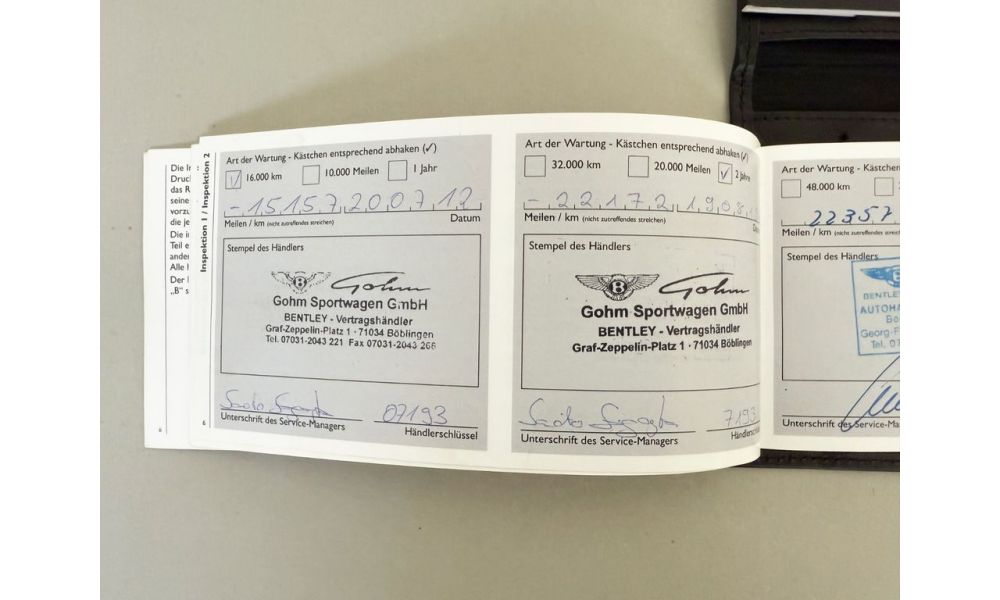 Die Ir
Druc
das R
seine
vorzu
die je
Die ir
Teil e
ander
Alle I
Der I
„B“ s
8
Inspektion 1 / Inspektion 2
6
Art der Wartung - Kästchen entsprechend abhaken (✓)
✓ 16.000 km 10.000 Meilen 1 Jahr
- 15157 200712
Meilen / km (nicht zutreffendes streichen) Datum
Stempel des Händlers
B Gohm
Gohm Sportwagen GmbH
BENTLEY - Vertragshändler
Graf-Zeppelin-Platz 1 · 71034 Böblingen
Tel. 07031-2043 221 Fax 07031-2043 266
07193
Unterschrift des Service-Managers Händlerschlüssel
Art der Wartung - Kästchen entsprechend abhaken (✓)
32.000 km 20.000 Meilen ✓ 2 Jahre
- 22172 19081
Meilen / km (nicht zutreffendes streichen) D
Stempel des Händlers
B Gohm
Gohm Sportwagen GmbH
BENTLEY - Vertragshändler
Graf-Zeppelin-Platz 1 · 71034 Böblingen
7193
Unterschrift des Service-Managers Händlerschlü
Art der Wartung - Kästchen
48.000 km
22357
Meilen / km (nicht zutreffendes streic
Stempel des Händlers
B
BENTLEY
AUTOHA
Bo
Georg-F
Tel. 07
Unterschrift des Service-Ma